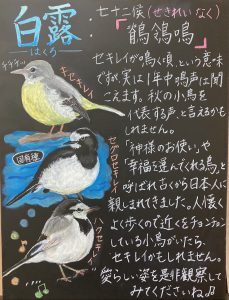 白露
はくろ
七十二候(せきれい なく)
「鶺鴒鳴」
セキレイが鳴く頃、という意味
ですが、実に1年中鳴声は聞
こえます。秋の小鳥を
代表する声、と言えるかも
しれません。
「神様のお使い」や
「幸福を運んでくれる鳥」と
呼ばれ古くから日本人に
親しまれてきました。人懐く
よく歩くので近くをチョンチョン
している小鳥がいたら、
セキレイかもしれません。
愛らしい姿を是非観察して
みてくださいね♫
チチチッ
キセキレイ
セグロセキレイ
固有種
ハクセキレイ